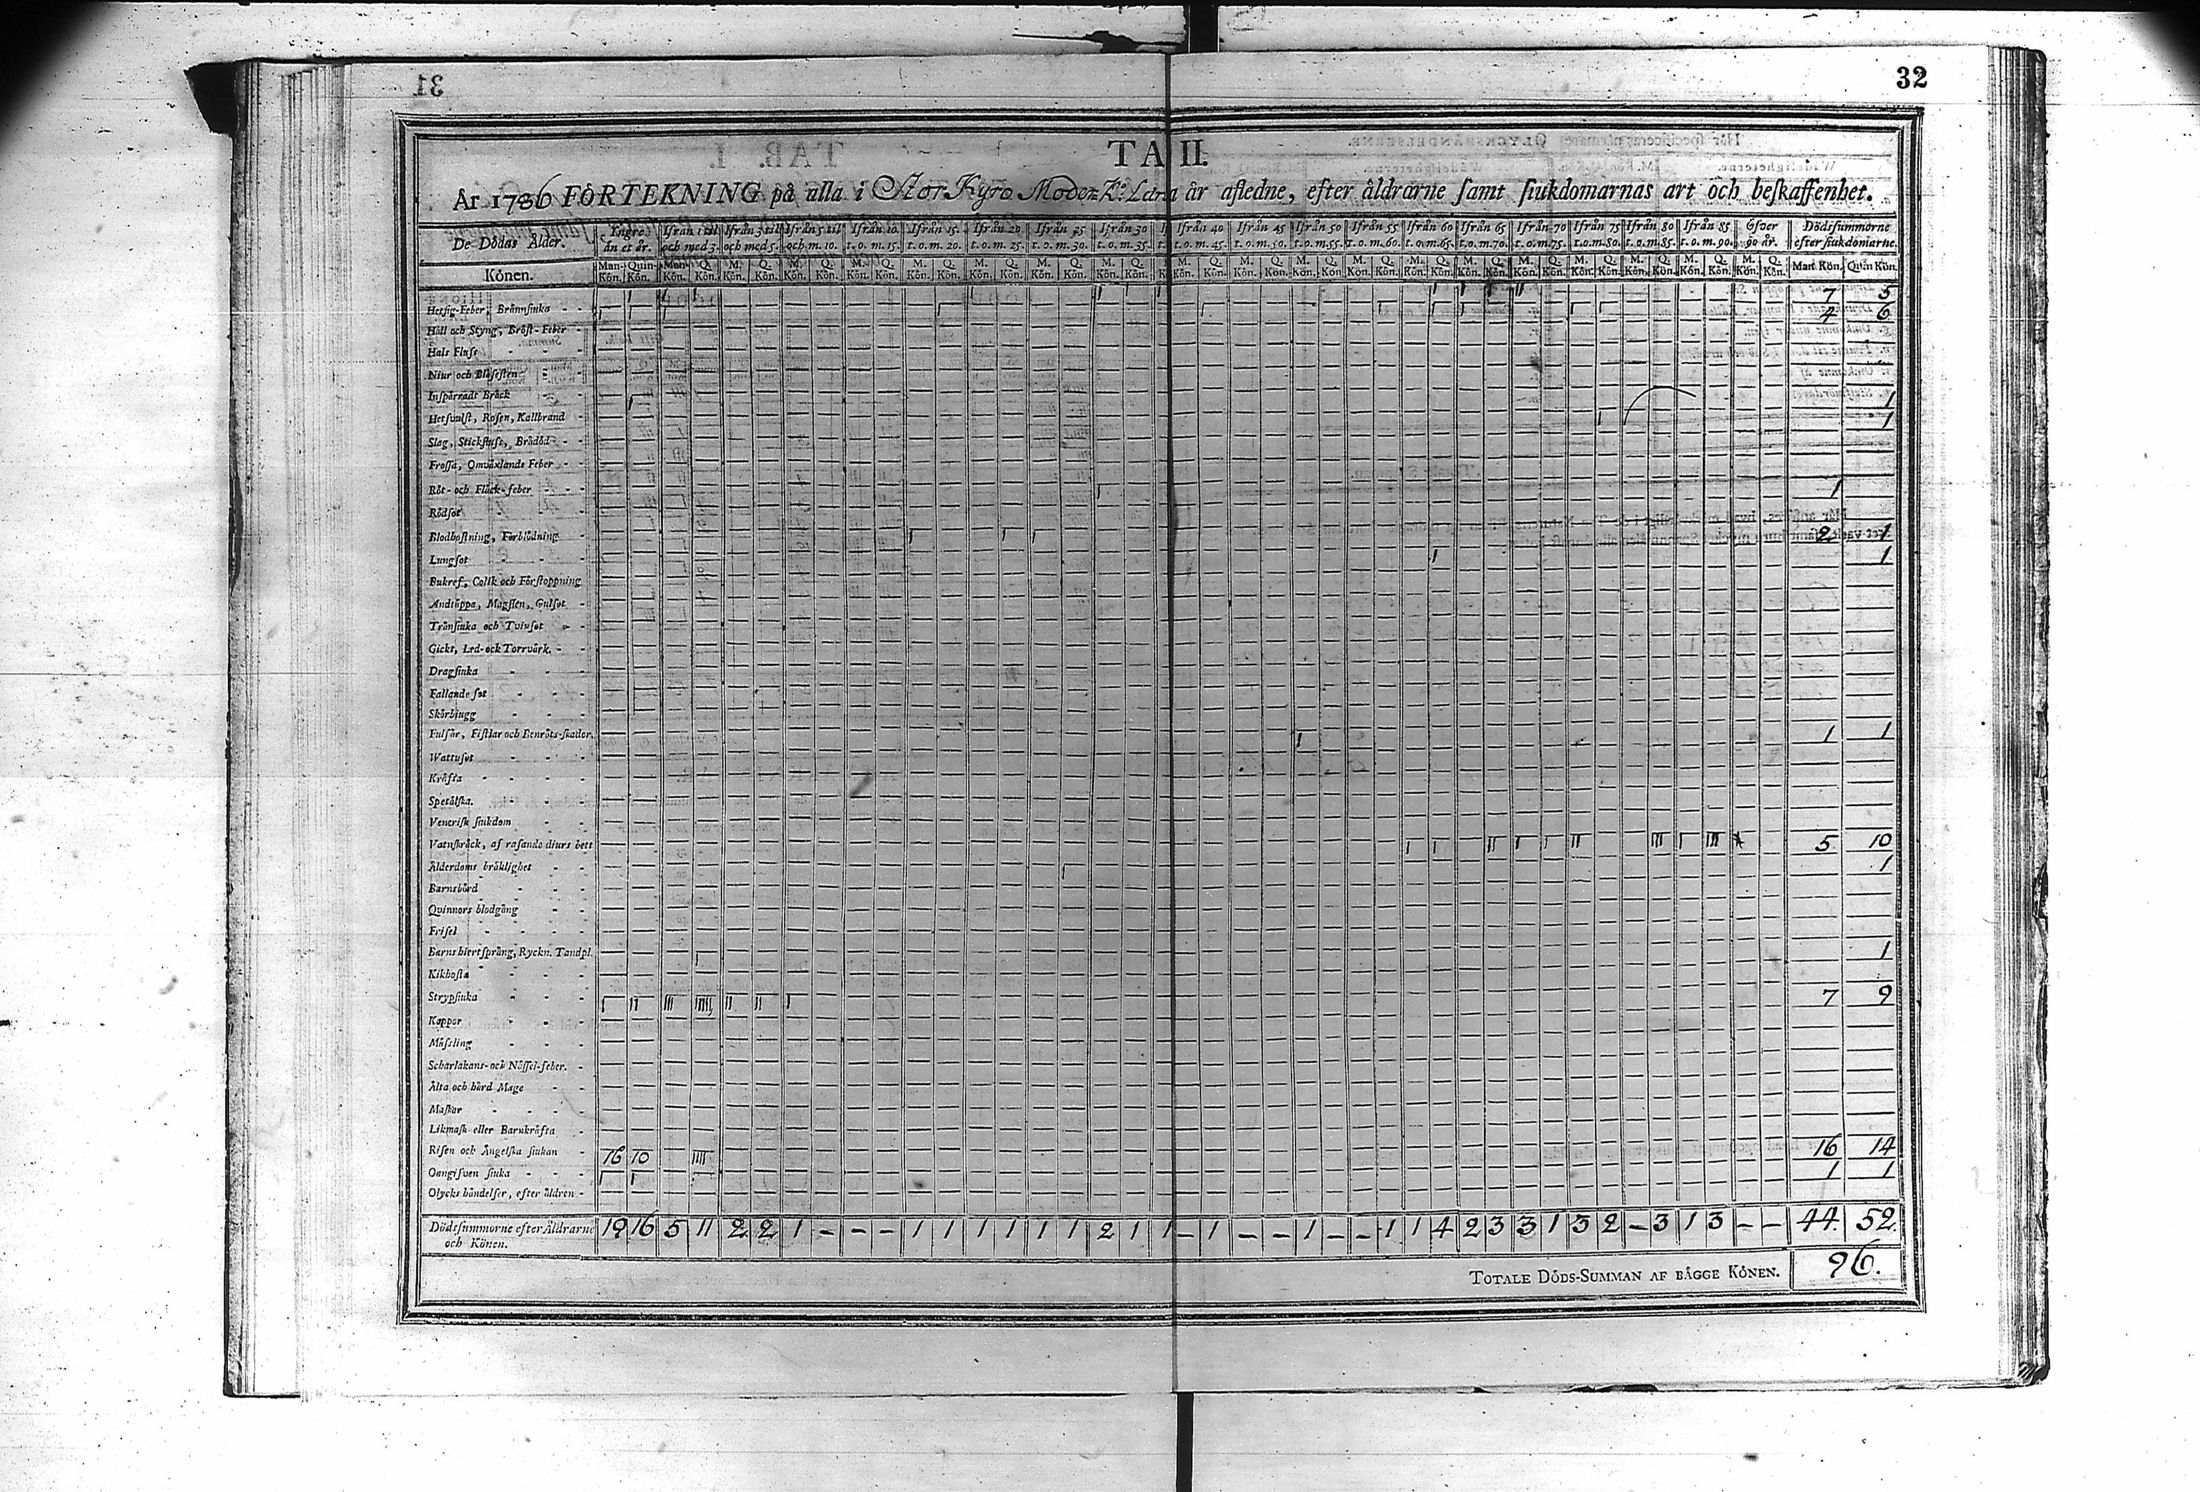 31
32
TA II.
År 1786 FÖRTEKNING på alla i Stor Kyro Moder K: i år afledne, efter åldrarne samt siukdomarnas art och beskaffenhet.
De Dödas Ålder. Yngre än et år. Ifrån 1 til och med 3. Ifrån 3 til och med 5. Ifrån 5 til och m. 10. Ifrån 10 t. o. m. 15. Ifrån 15 t. o. m. 20. Ifrån 20 t. o. m. 25. Ifrån 25 t. o. m. 30. Ifrån 30 t. o. m. 35. Ifrån 40 t. o. m. 45. Ifrån 45 t. o. m. 50. Ifrån 50 t. o. m. 55. Ifrån 55 t. o. m. 60. Ifrån 60 t. o. m. 65. Ifrån 65 t. o. m. 70. Ifrån 70 t. o. m. 75. Ifrån 75 t. o. m. 80. Ifrån 80 t. o. m. 85. Ifrån 85 t. o. m. 90. Öfver 90 år. Dödssummorne efter siukdomarne.
Könen. Man-Kön. Quin-Kön. Man-Kön. Q. Kön. M. Kön. Q. Kön. M. Kön. Q. Kön. M. Kön. Q. Kön. M. Kön. Q. Kön. M. Kön. Q. Kön. M. Kön. Q. Kön. M. Kön. Q. Kön. M. Kön. Q. Kön. M. Kön. Q. Kön. M. Kön. Q. Kön. M. Kön. Q. Kön. M. Kön. Q. Kön. M. Kön. Q. Kön. M. Kön. Q. Kön. M. Kön. Q. Kön. M. Kön. Q. Kön. M. Kön. Q. Kön. M. Kön. Q. Kön. Man Kön. Quin Kön.
Hetsig-Feber, Brännsiuka 7 5
Håll och Styng, Bröst-Feber 4 6
Hals Fluss
Niur och Blåsesten
Inspärradt Bråck
Hetsvulst, Rosen, Kallbrand 1
Slag, Stickfluss, Brådöd 1
Frossa, Omväxlande Feber
Röt- och Fläck-feber
Rödsot 1
Blodhostning, Förblödning
Lungsot 2 1
Bukref, Colik och Förstoppning 1
Andtäppa, Magsten, Gulsot
Trånsiuka och Tvinsot
Gickt, Led- och Torrvärk.
Dragsiuka
Fallande sot
Skörbjugg
Fulsår, Fistlar och Benröts-skador.
Wattusot 1 1
Kräfta
Spetälska.
Venerisk siukdom
Vatuskräck, af rasande diurs bett
Ålderdoms bräklighet 5 10
Barnsbörd 1
Quinnors blodgång
Frisel
Barns hiertsprång, Ryckn. Tandpl.
Kikhosta 1
Strypsiuka
Koppor 7 9
Mässling
Scharlakans- och Nässel-feber.
Älta och hård Mage
Maskar
Likmask eller Barnkräfta
Risen och Ängelska siukan
Oangifven siuka 16 10 16 14
Olycks händelser, efter åldren 1 1
Dödssummorne efter Åldrarne och Könen. 19 16 5 11 2 2 1 – – – 1 1 1 1 1 1 2 1 1 – 1 – – 1 – – 1 1 4 2 3 3 1 3 2 – 3 1 3 – – 44. 52.
TOTALE DÖDS-SUMMAN AF BÄGGE KÖNEN. 96.